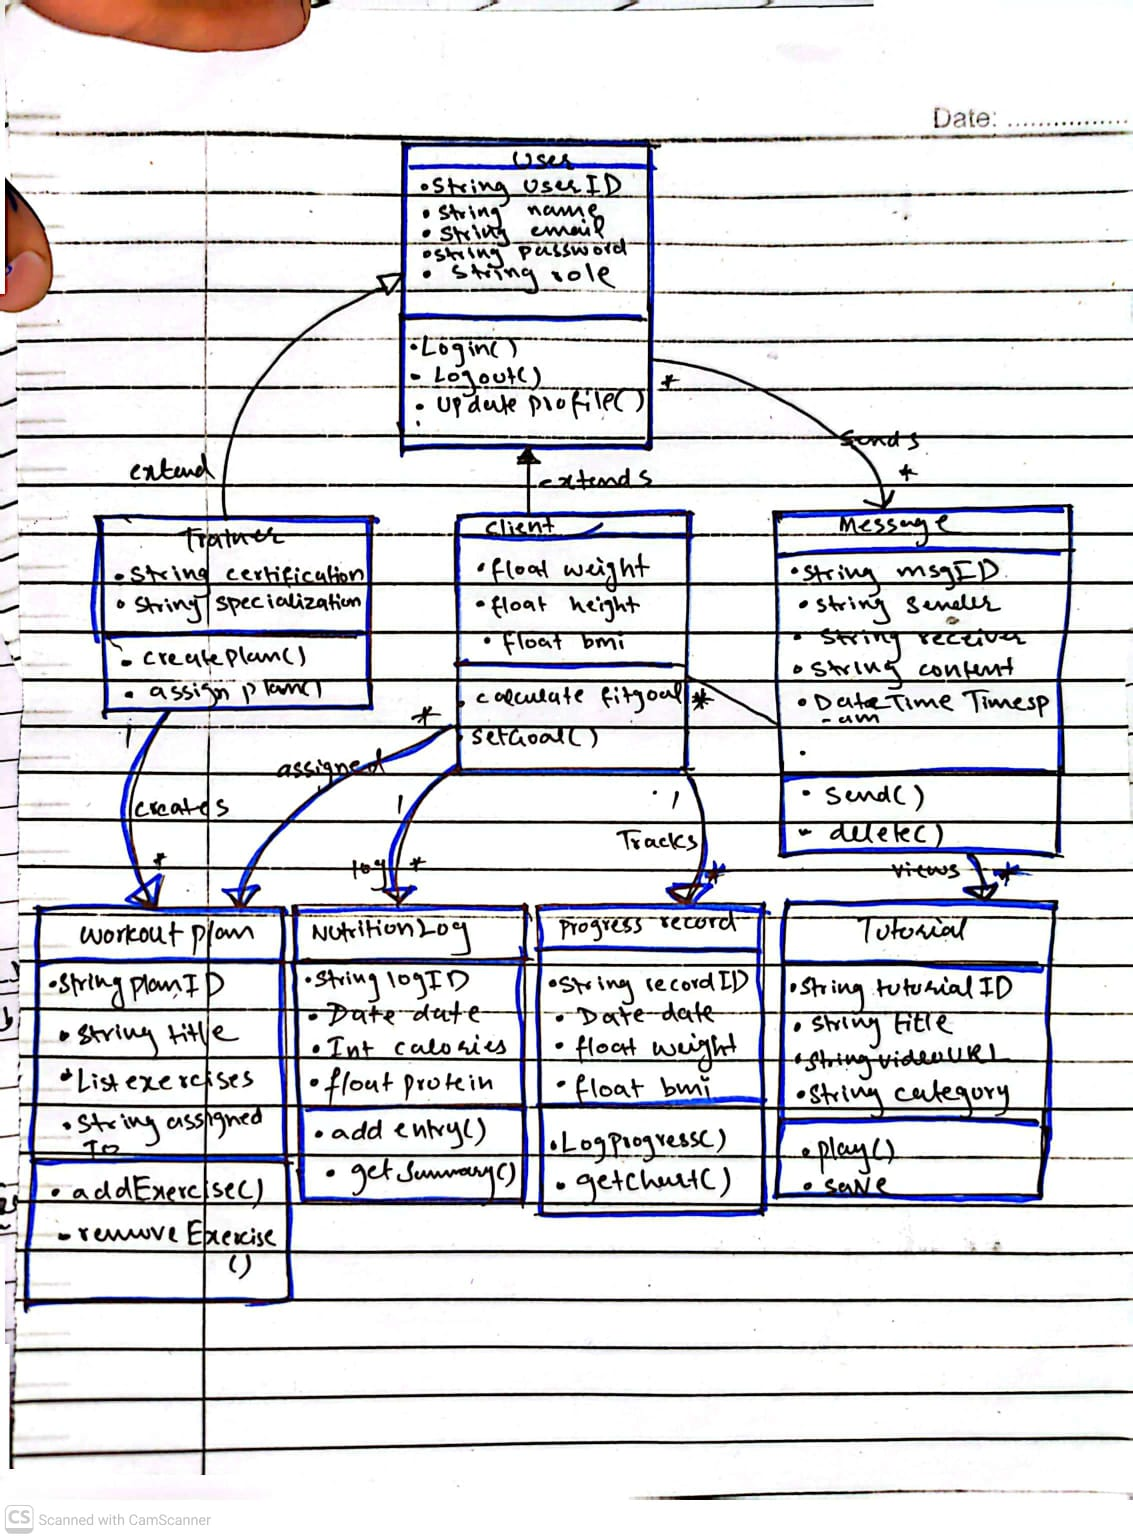 Date: ................
User
• String userID
• String name
• String email
• String password
• String role
• Login()
• Logout()
• Update profile()
extend
extends
*
Sends
*
Trainer
• String certification
• String specialization
• createplan()
• assign plan()
Client
• float weight
• float height
• float bmi
• calculate fitgoal
• setGoal()
Message
• String msgID
• String Sender
• String receiver
• String content
• Date-Time Timesp
-am
•
• Send()
• delete()
1
creates
*
*
assigned
1
log
*
1
Tracks
*
*
views
*
Workout plan
• String planID
• String title
• List exercises
• String assigned
To
• addExercise()
• remove Exercise
()
NutritionLog
• String logID
• Date date
• Int calories
• float protein
• add entry()
• getSummary()
Progress record
• String recordID
• Date date
• float weight
• float bmi
• LogProgress()
• getchart()
Tutorial
• String tutorialID
• String title
• String videoURL
• String category
• play()
• save
CS Scanned with CamScanner